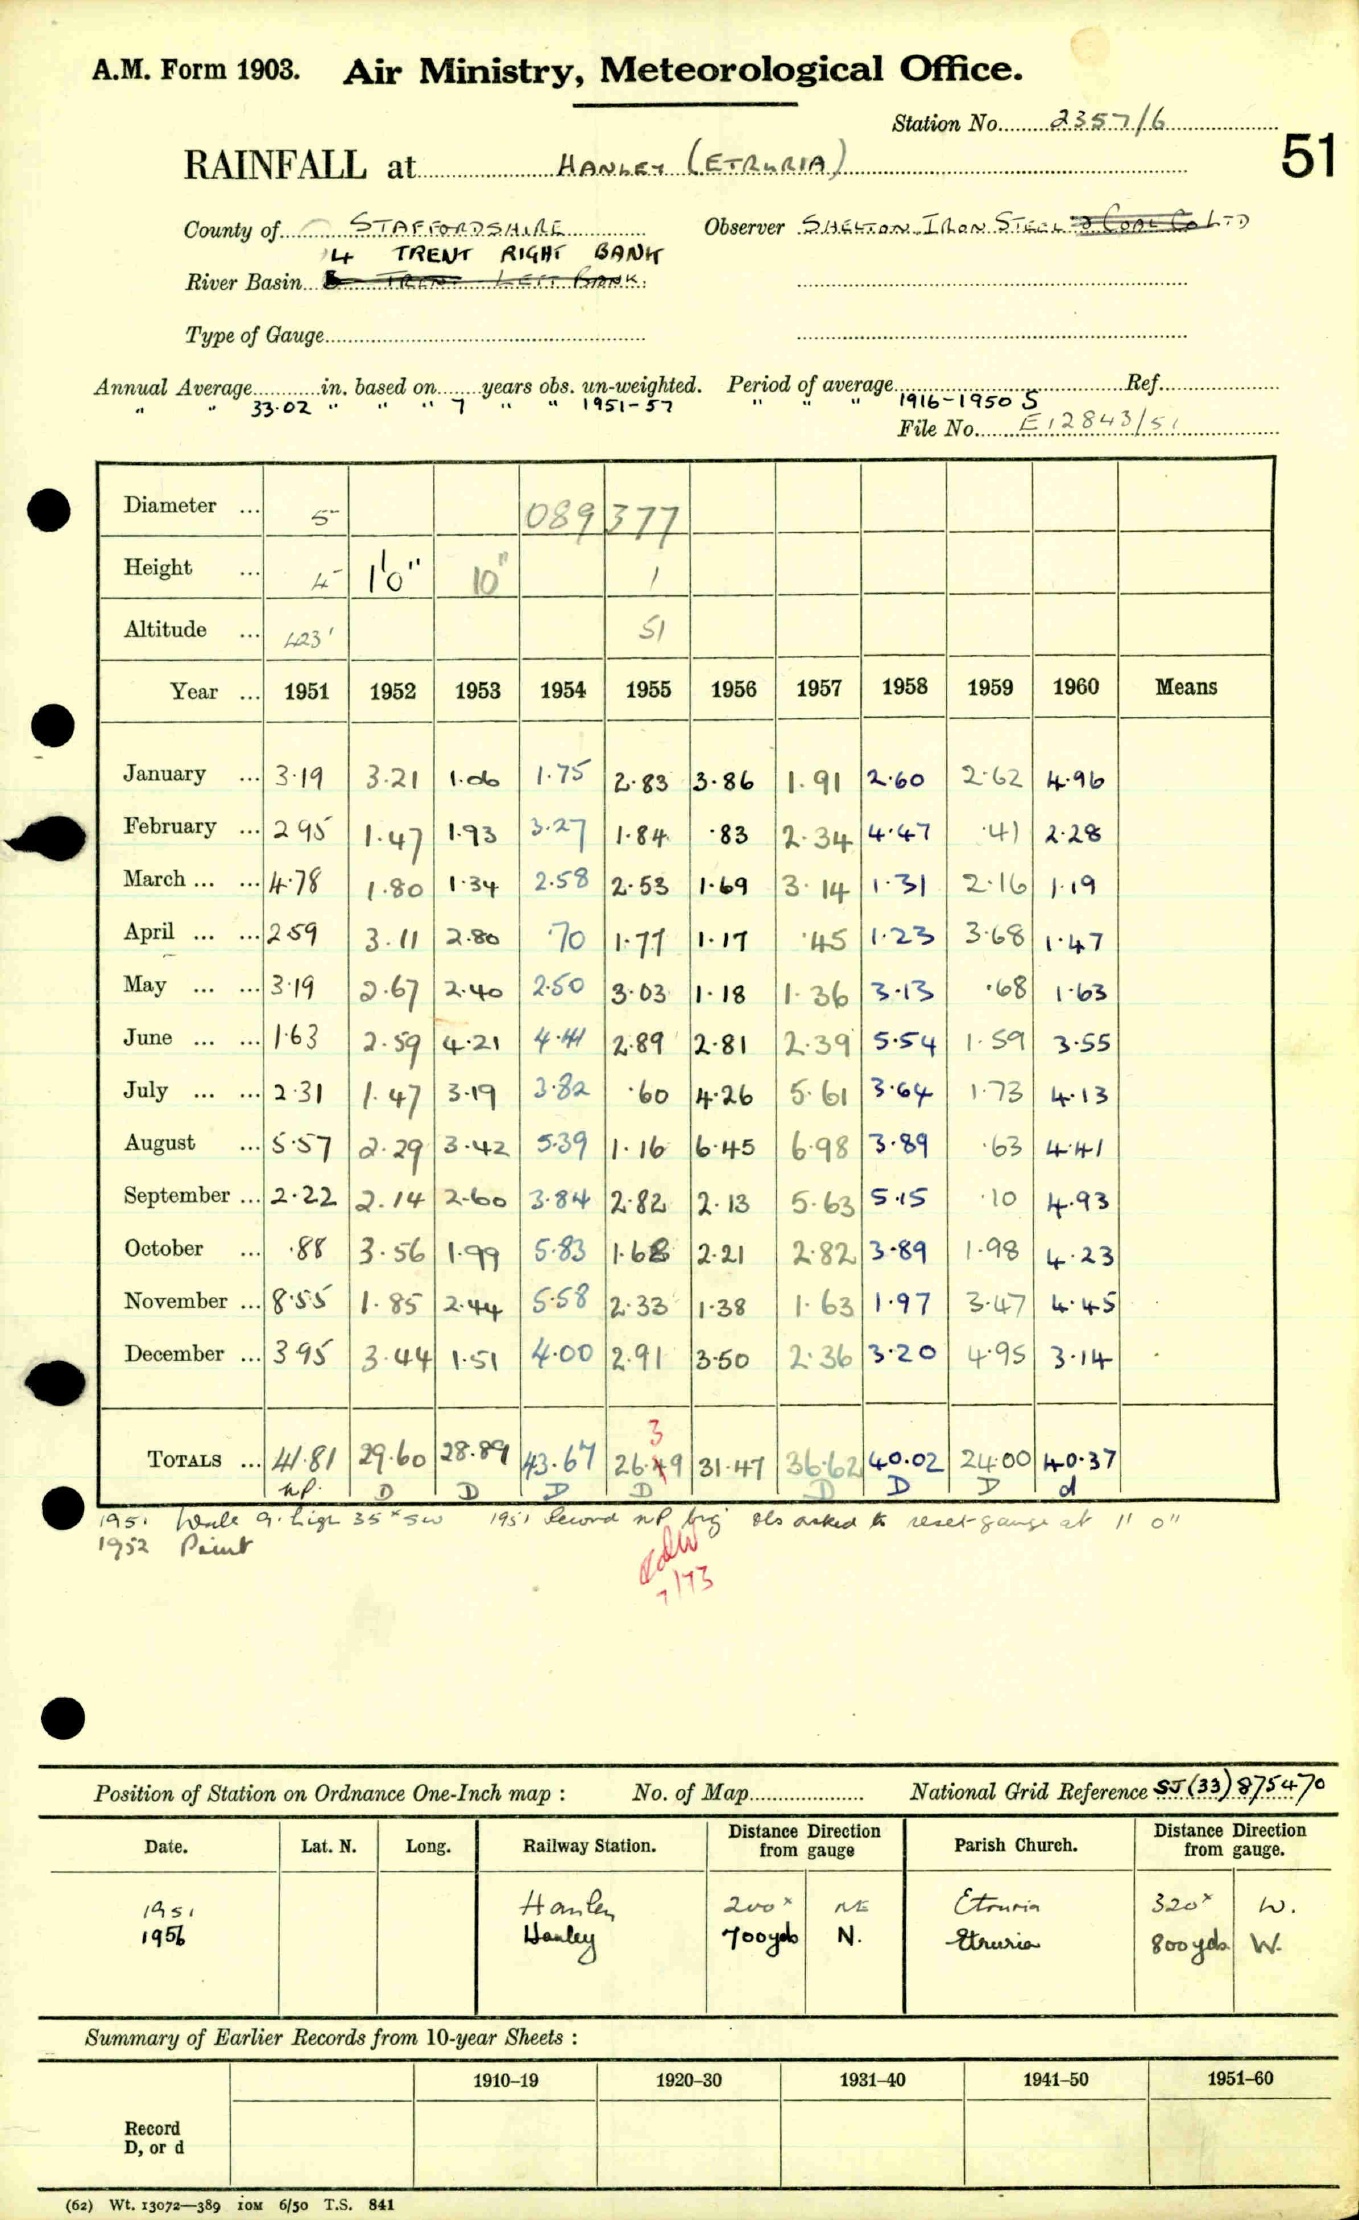 A.M. Form 1903. Air Ministry, Meteorological Office.
Station No. 2357/6
51
RAINFALL at HANLEY (ETRURIA)
County of STAFFORDSHIRE Observer SHELTON IRON STEEL & COAL CO LTD
4 TRENT RIGHT BANK
River Basin TRENT LEFT BANK
Type of Gauge
Annual Average in. based on years obs. un-weighted. Period of average Ref.
" " 33.02 " " " 7 " " 1951-57 " " " 1916-1950 S
File No. E12843/51
Diameter ... 5" 089 377
Height ... 4" 1'0" 10" 1
Altitude ... 423' 51
Year ... 1951 1952 1953 1954 1955 1956 1957 1958 1959 1960 Means
January ... 3.19 3.21 1.06 1.75 2.83 3.86 1.91 2.60 2.62 4.96
February ... 2.95 1.47 1.93 3.27 1.84 .83 2.34 4.47 .41 2.28
March ... ... 4.78 1.80 1.34 2.58 2.53 1.69 3.14 1.31 2.16 1.19
April ... ... 2.59 3.11 2.80 .70 1.77 1.17 .45 1.23 3.68 1.47
May ... ... 3.19 2.67 2.40 2.50 3.03 1.18 1.36 3.13 .68 1.63
June ... ... 1.63 2.59 4.21 4.41 2.89 2.81 2.39 5.54 1.59 3.55
July ... ... 2.31 1.47 3.19 3.82 .60 4.26 5.61 3.64 1.73 4.13
August ... 5.57 2.29 3.42 5.39 1.16 6.45 6.98 3.89 .63 4.41
September ... 2.22 2.14 2.60 3.84 2.82 2.13 5.63 5.15 .10 4.93
October ... .88 3.56 1.99 5.83 1.68 2.21 2.82 3.89 1.98 4.23
November ... 8.55 1.85 2.44 5.58 2.33 1.38 1.63 1.97 3.47 4.45
December ... 3.95 3.44 1.51 4.00 2.91 3.50 2.36 3.20 4.95 3.14
3
TOTALS ... 41.81 29.60 28.89 43.67 26.49 31.47 36.62 40.02 24.00 40.37
NP. D D D D D D D d
1951 9' high 35x SW 1951 Record NP obs asked to reset gauge at 1' 0"
1952 Paint
7/73
Position of Station on Ordnance One-Inch map : No. of Map National Grid Reference SJ (33) 875470
Date. Lat. N. Long. Railway Station. Distance from gauge Direction Parish Church. Distance from gauge. Direction
1951 Hanley 200x NE Etruria 320x W.
1956 Hanley 700yds N. Etruria 800yds W.
Summary of Earlier Records from 10-year Sheets :
1910–19 1920–30 1931–40 1941–50 1951–60
Record
D, or d
(62) Wt. 13072—389 10M 6/50 T.S. 841